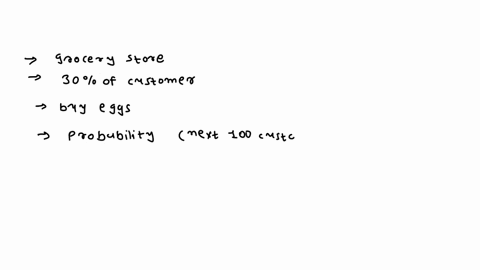 → grocery store
→ 30% of customer
→ buy eggs
→ probability (next 100 custo